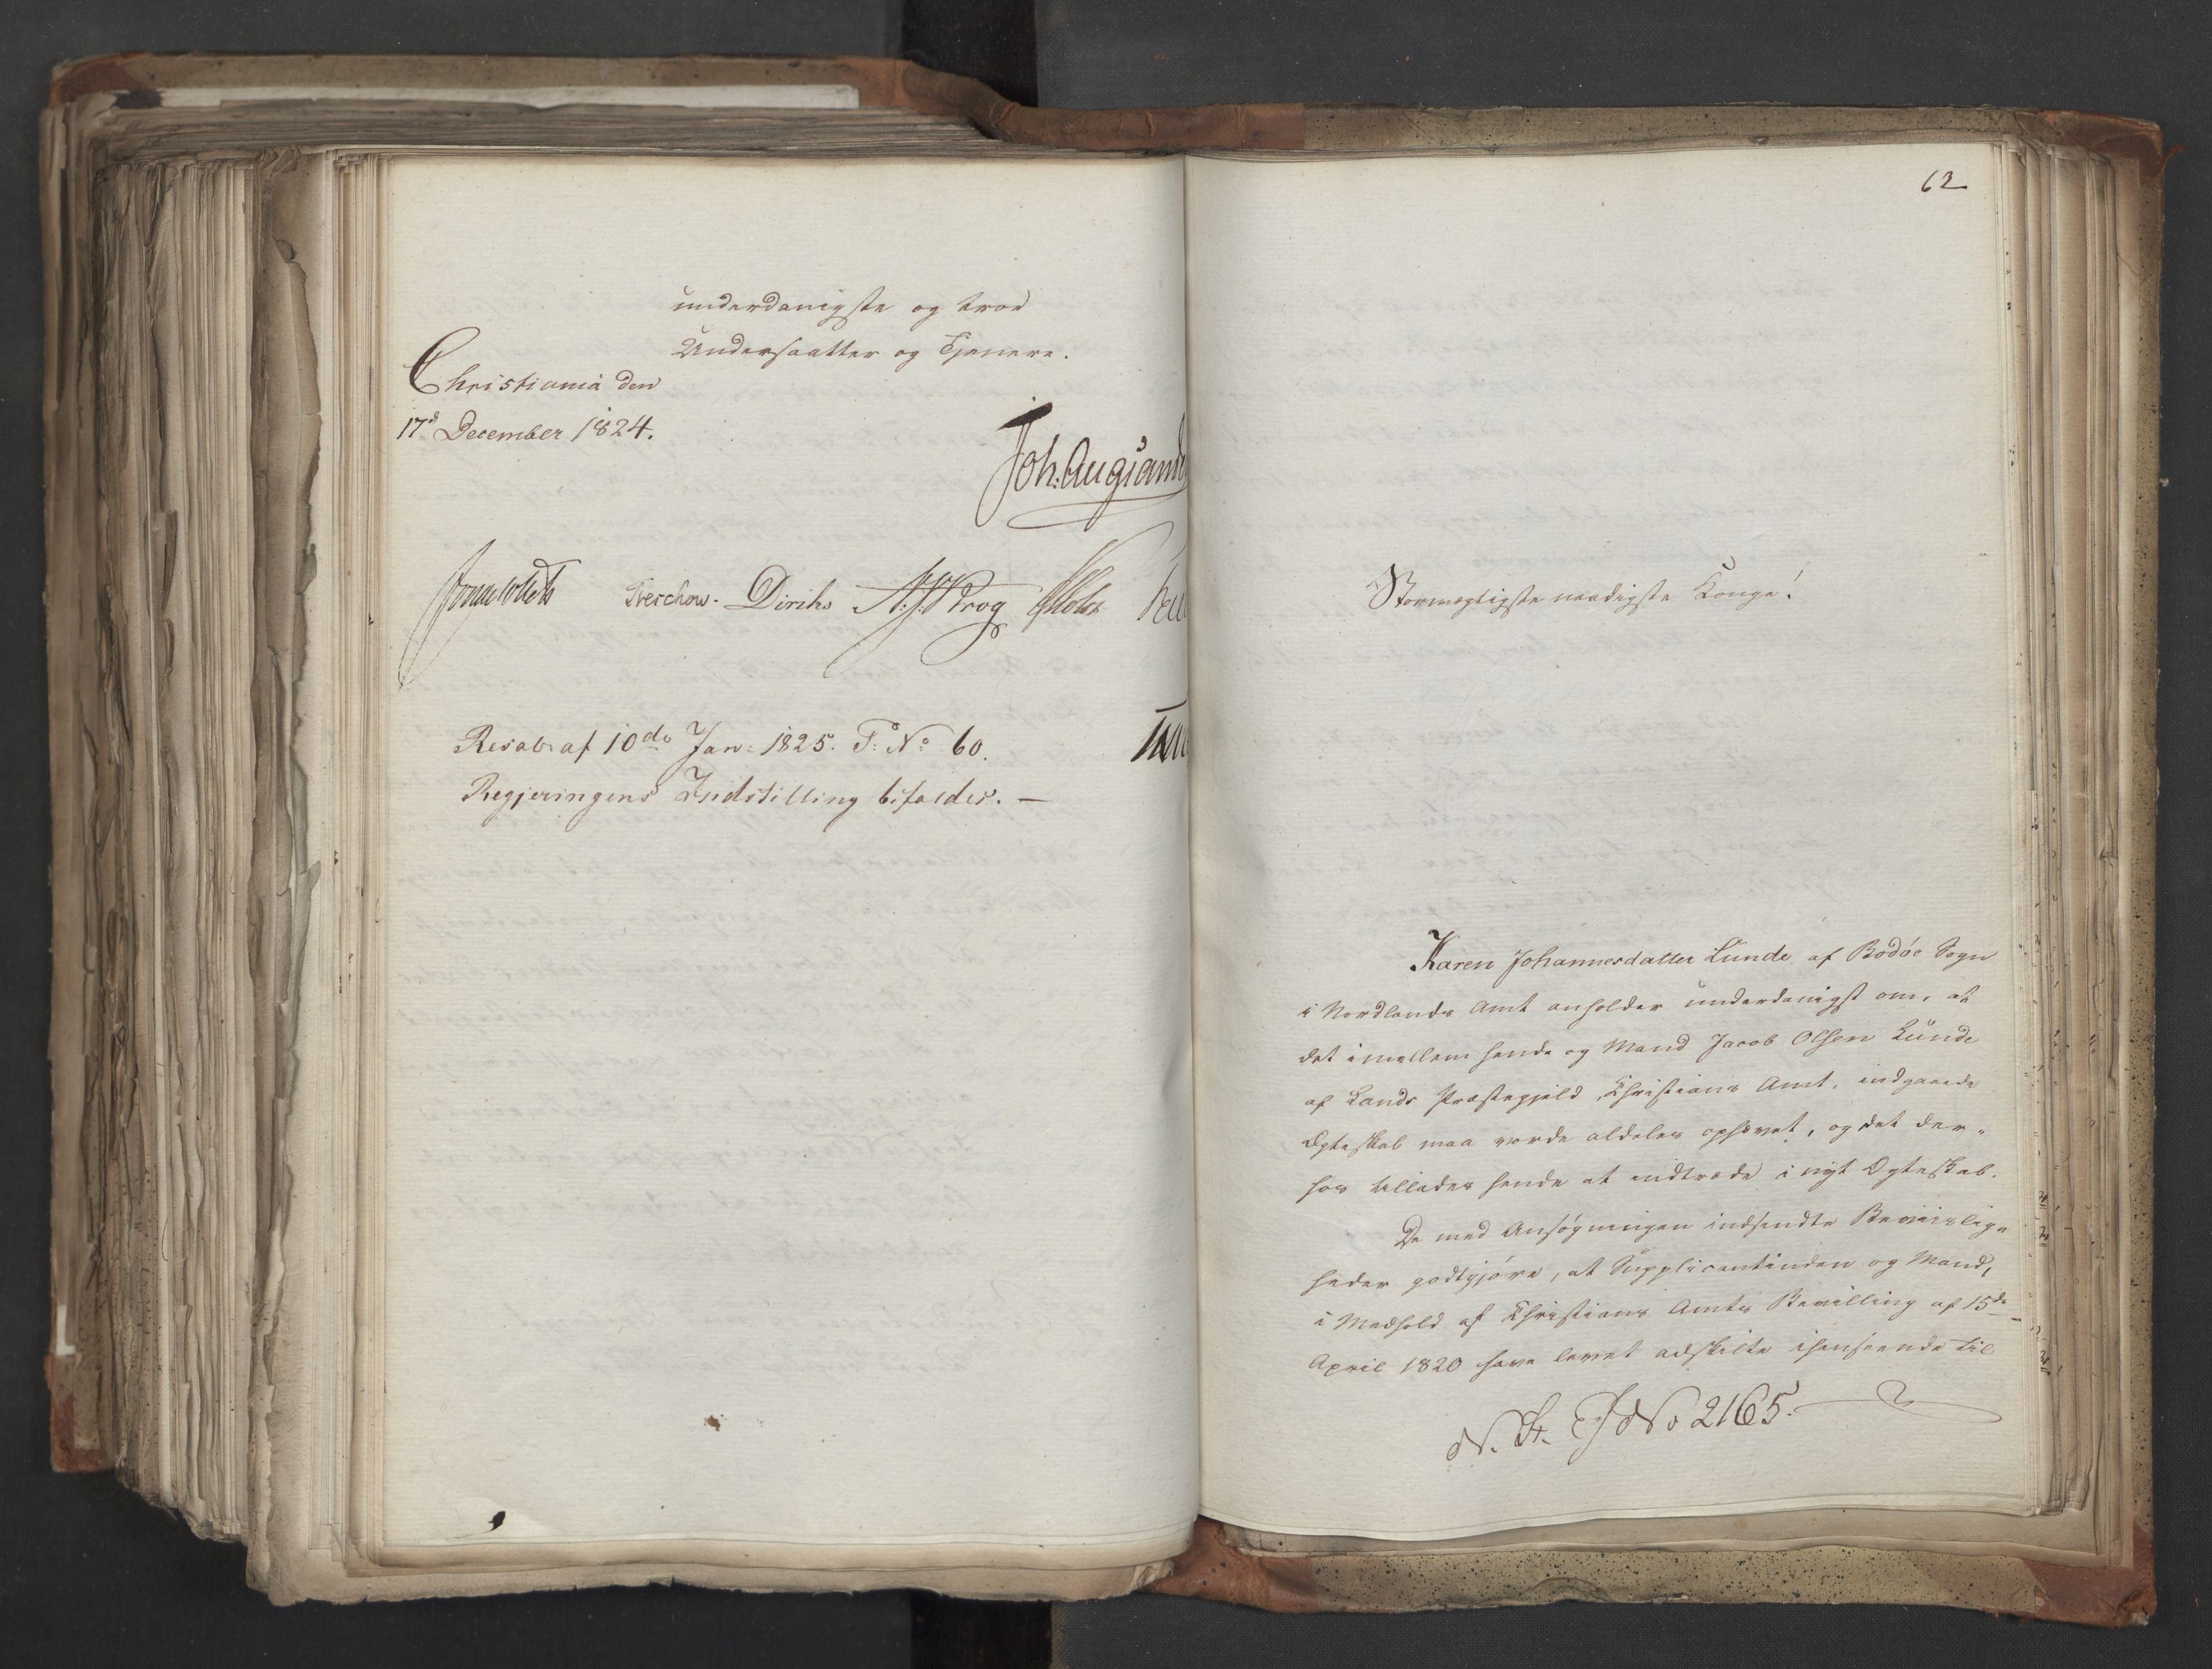 underdanigste og troe
Undersaatter og Tjenere.
Christiania den
17de December 1824.
Joh. Aug: Sand
Treschow. Diriks
Resol: af 10de Jan: 1825. P: No 60.
Regjeringens Indstilling bifaldes. —
62
Stormægtigste naadigste Konge!
Karen Johannesdatter Lunde af Bodøe Sogn
i Nordlands Amt anholder underdanigst om, at
det imellem hende og Mand Jacob Olsen Lunde
af Lands Præstegjeld, Christians Amt, indgaaede
Ægteskab maa vorde aldeles ophævet, og det der-
hos tillades hende at indtræde i nyt Ægteskab.
De med Ansøgningen indsendte Beviislig-
heder godtgjøre, at Supplicantinden og Mand,
i Medhold af Christians Amts Bevilling af 15de
April 1820 have levet adskilte ihenseende til
No 2165.